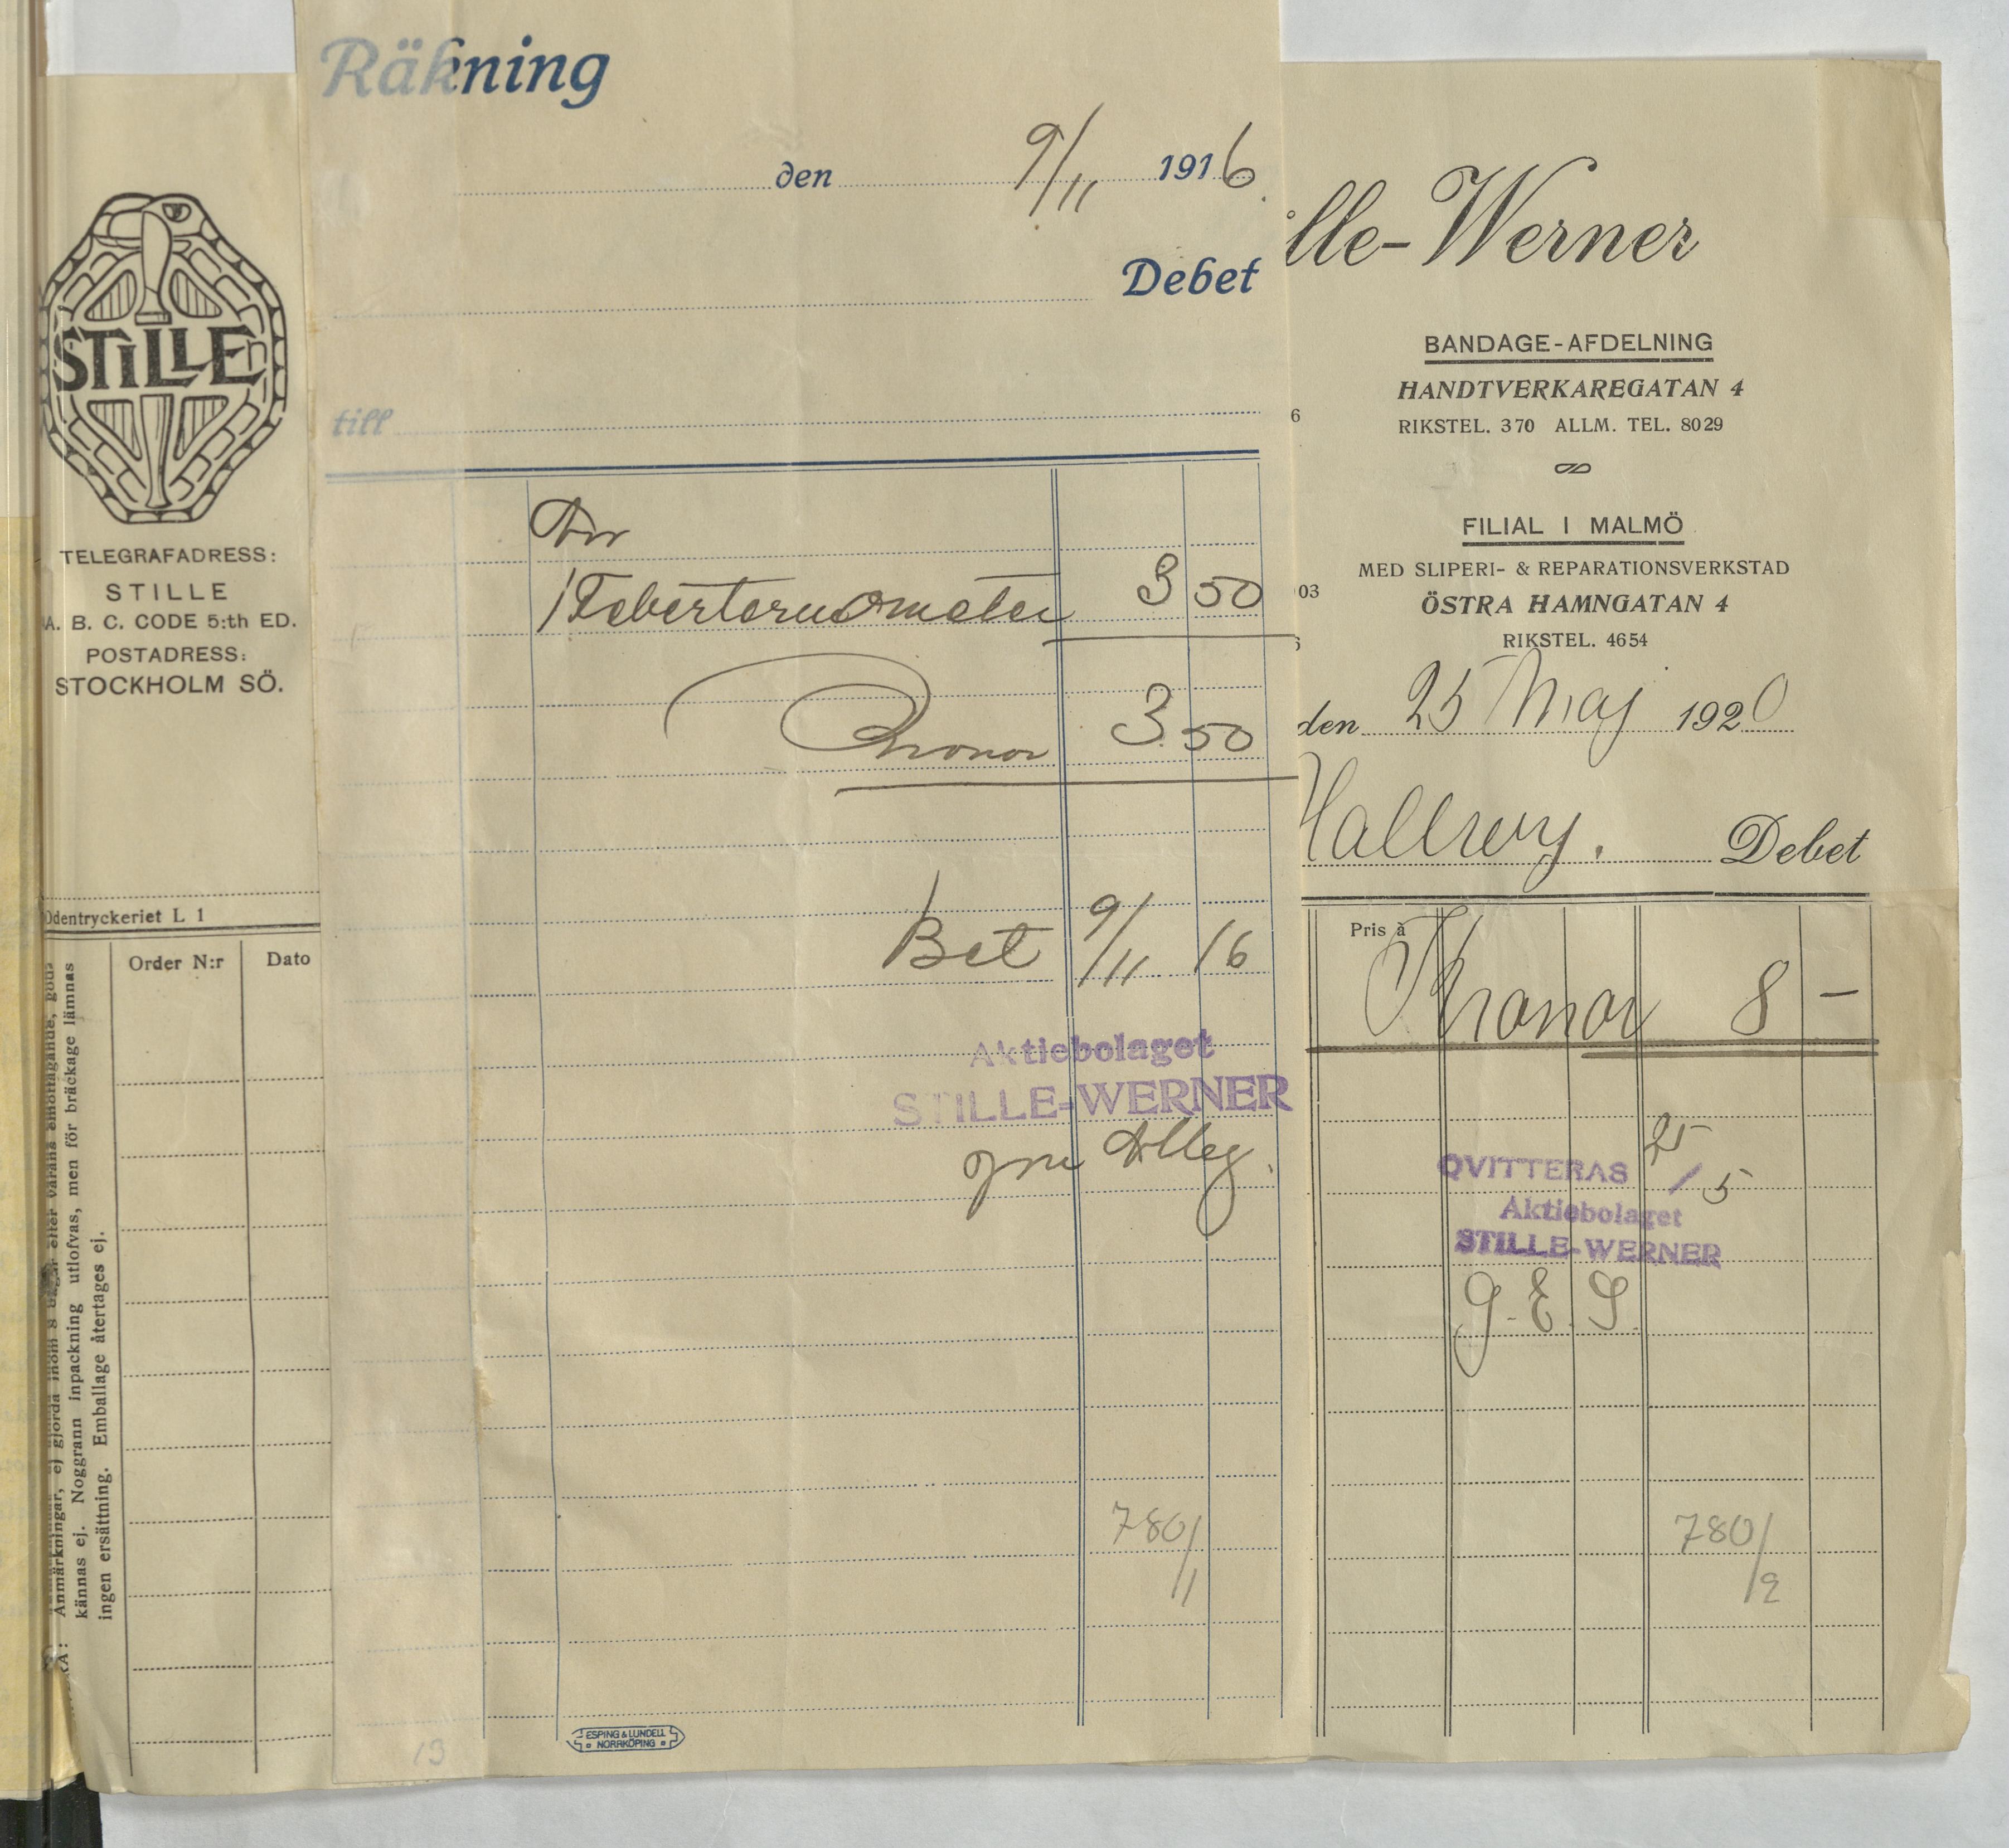 Räkning
den 9/11 1916
Debet
till
1 Febertermometer 3 50
Kronor 3.50
Bet 9/11 16
Aktiebolaget
STILLE-WERNER
780/1
ESPING & LUNDELL
NORRKÖPING
13
STILLE
TELEGRAFADRESS:
STILLE
A. B. C. CODE 5:th ED.
POSTADRESS:
STOCKHOLM SÖ.
Odentryckeriet L 1
Order N:r Dato
Anmärkningar, ej gjorda inom 8 dagar efter varans emottagande, godkännas ej. Noggrann inpackning utlofvas, men för bräckage lämnas
ingen ersättning. Emballage återtages ej.
lle-Werner
BANDAGE-AFDELNING
HANDTVERKAREGATAN 4
RIKSTEL. 370 ALLM. TEL. 8029
6
FILIAL I MALMÖ
MED SLIPERI- & REPARATIONSVERKSTAD
03
ÖSTRA HAMNGATAN 4
RIKSTEL. 4654
den 25 Maj 1920
Hallwyl. Debet
Pris à
Kronor 8 –
QVITTERAS 25/5
Aktiebolaget
STILLE-WERNER
G. E. S.
780/2